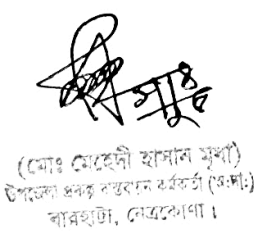 (মোঃ মেহেদী হাসান মৃধা)
উপজেলা প্রকল্প বাস্তবায়ন কর্মকর্তা (অঃদাঃ)
বারহাট্টা, নেত্রকোণা।